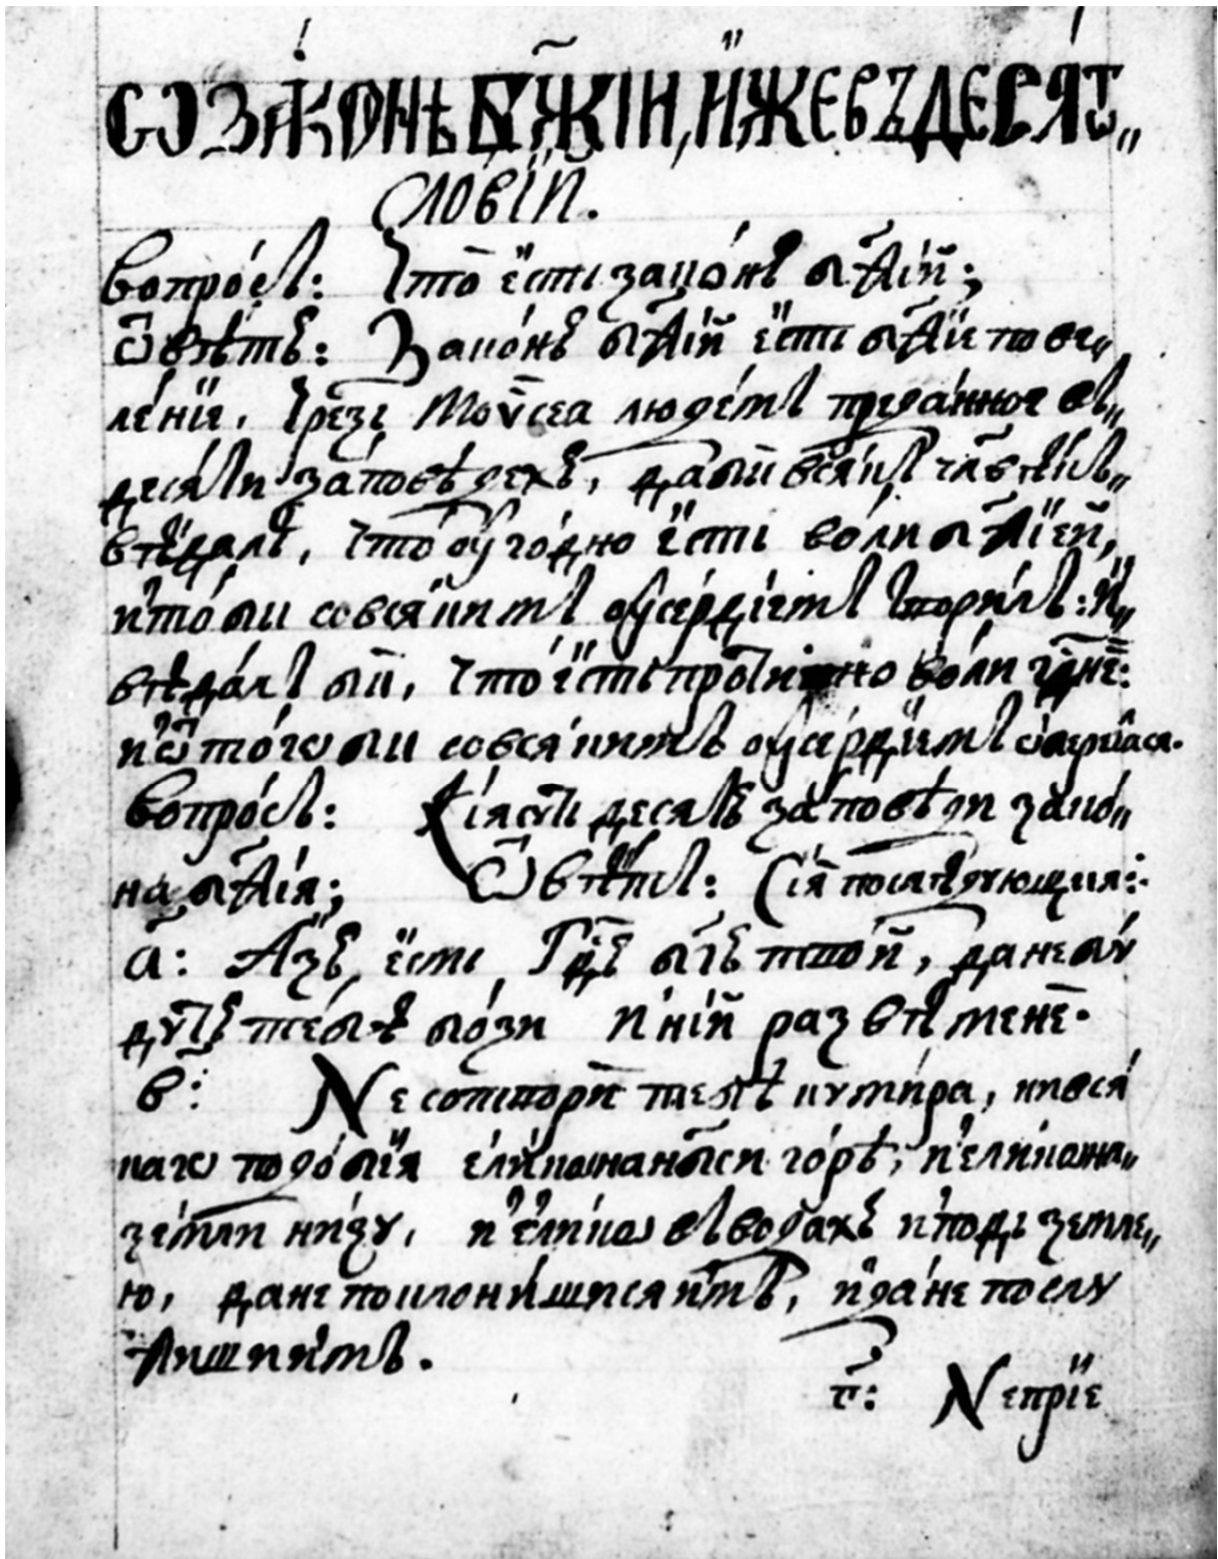 Ѡ ЗАКОНѢ БЖ҃ІИ, И҆ЖЕ ВЪ ДЕСЯТО„
словїй.
Вопро́съ: Что̀ є҆сть зако́нъ бж҃їй;
Ѿвѣ́тъ: Зако́нъ бж҃їй є҆сть бж҃їе пове„
ле́нїе, чрезъ Моѵсеа людемъ преда́нное въ„
десяти за́повѣдехъ, дабы̀ всякъ чл҃вѣкъ„
вѣдалъ, что̀ оуго́дно є҆сть во́ли бж҃їей,
и то́ бы совсякимъ оусе́рдїемъ творилъ: и҆„
вѣда́лъ бы, что є҆сть проти́вно во́ли гд҃не:
и ѿ то́гѡ бы совсякимъ оусе́рдїемъ
Вопро́съ: Кїя сꙋть десять за́повѣди зако́„
на бж҃їя; Ѿвѣ́тъ: Сїя послѣдꙋющия:
а҃: Азъ є҆смь Гд҃ь бг҃ъ твой, да не бꙋ
дꙋтъ тебѣ бо́зи и҆нїй развѣ мене.
в҃: Не сотвори тебѣ кꙋми́ра, ни вся
кагѡ подо́бїя є҆ли́ка на нб҃си горѣ, и є҆ли́ка на„
земли́ ни́зꙋ, и є҆ли́ка въ водахъ и под земле„
ю, да не поклони́шися и҆мъ, и да́ не послꙋ
жиши и҆мъ.
г҃: Не прїе